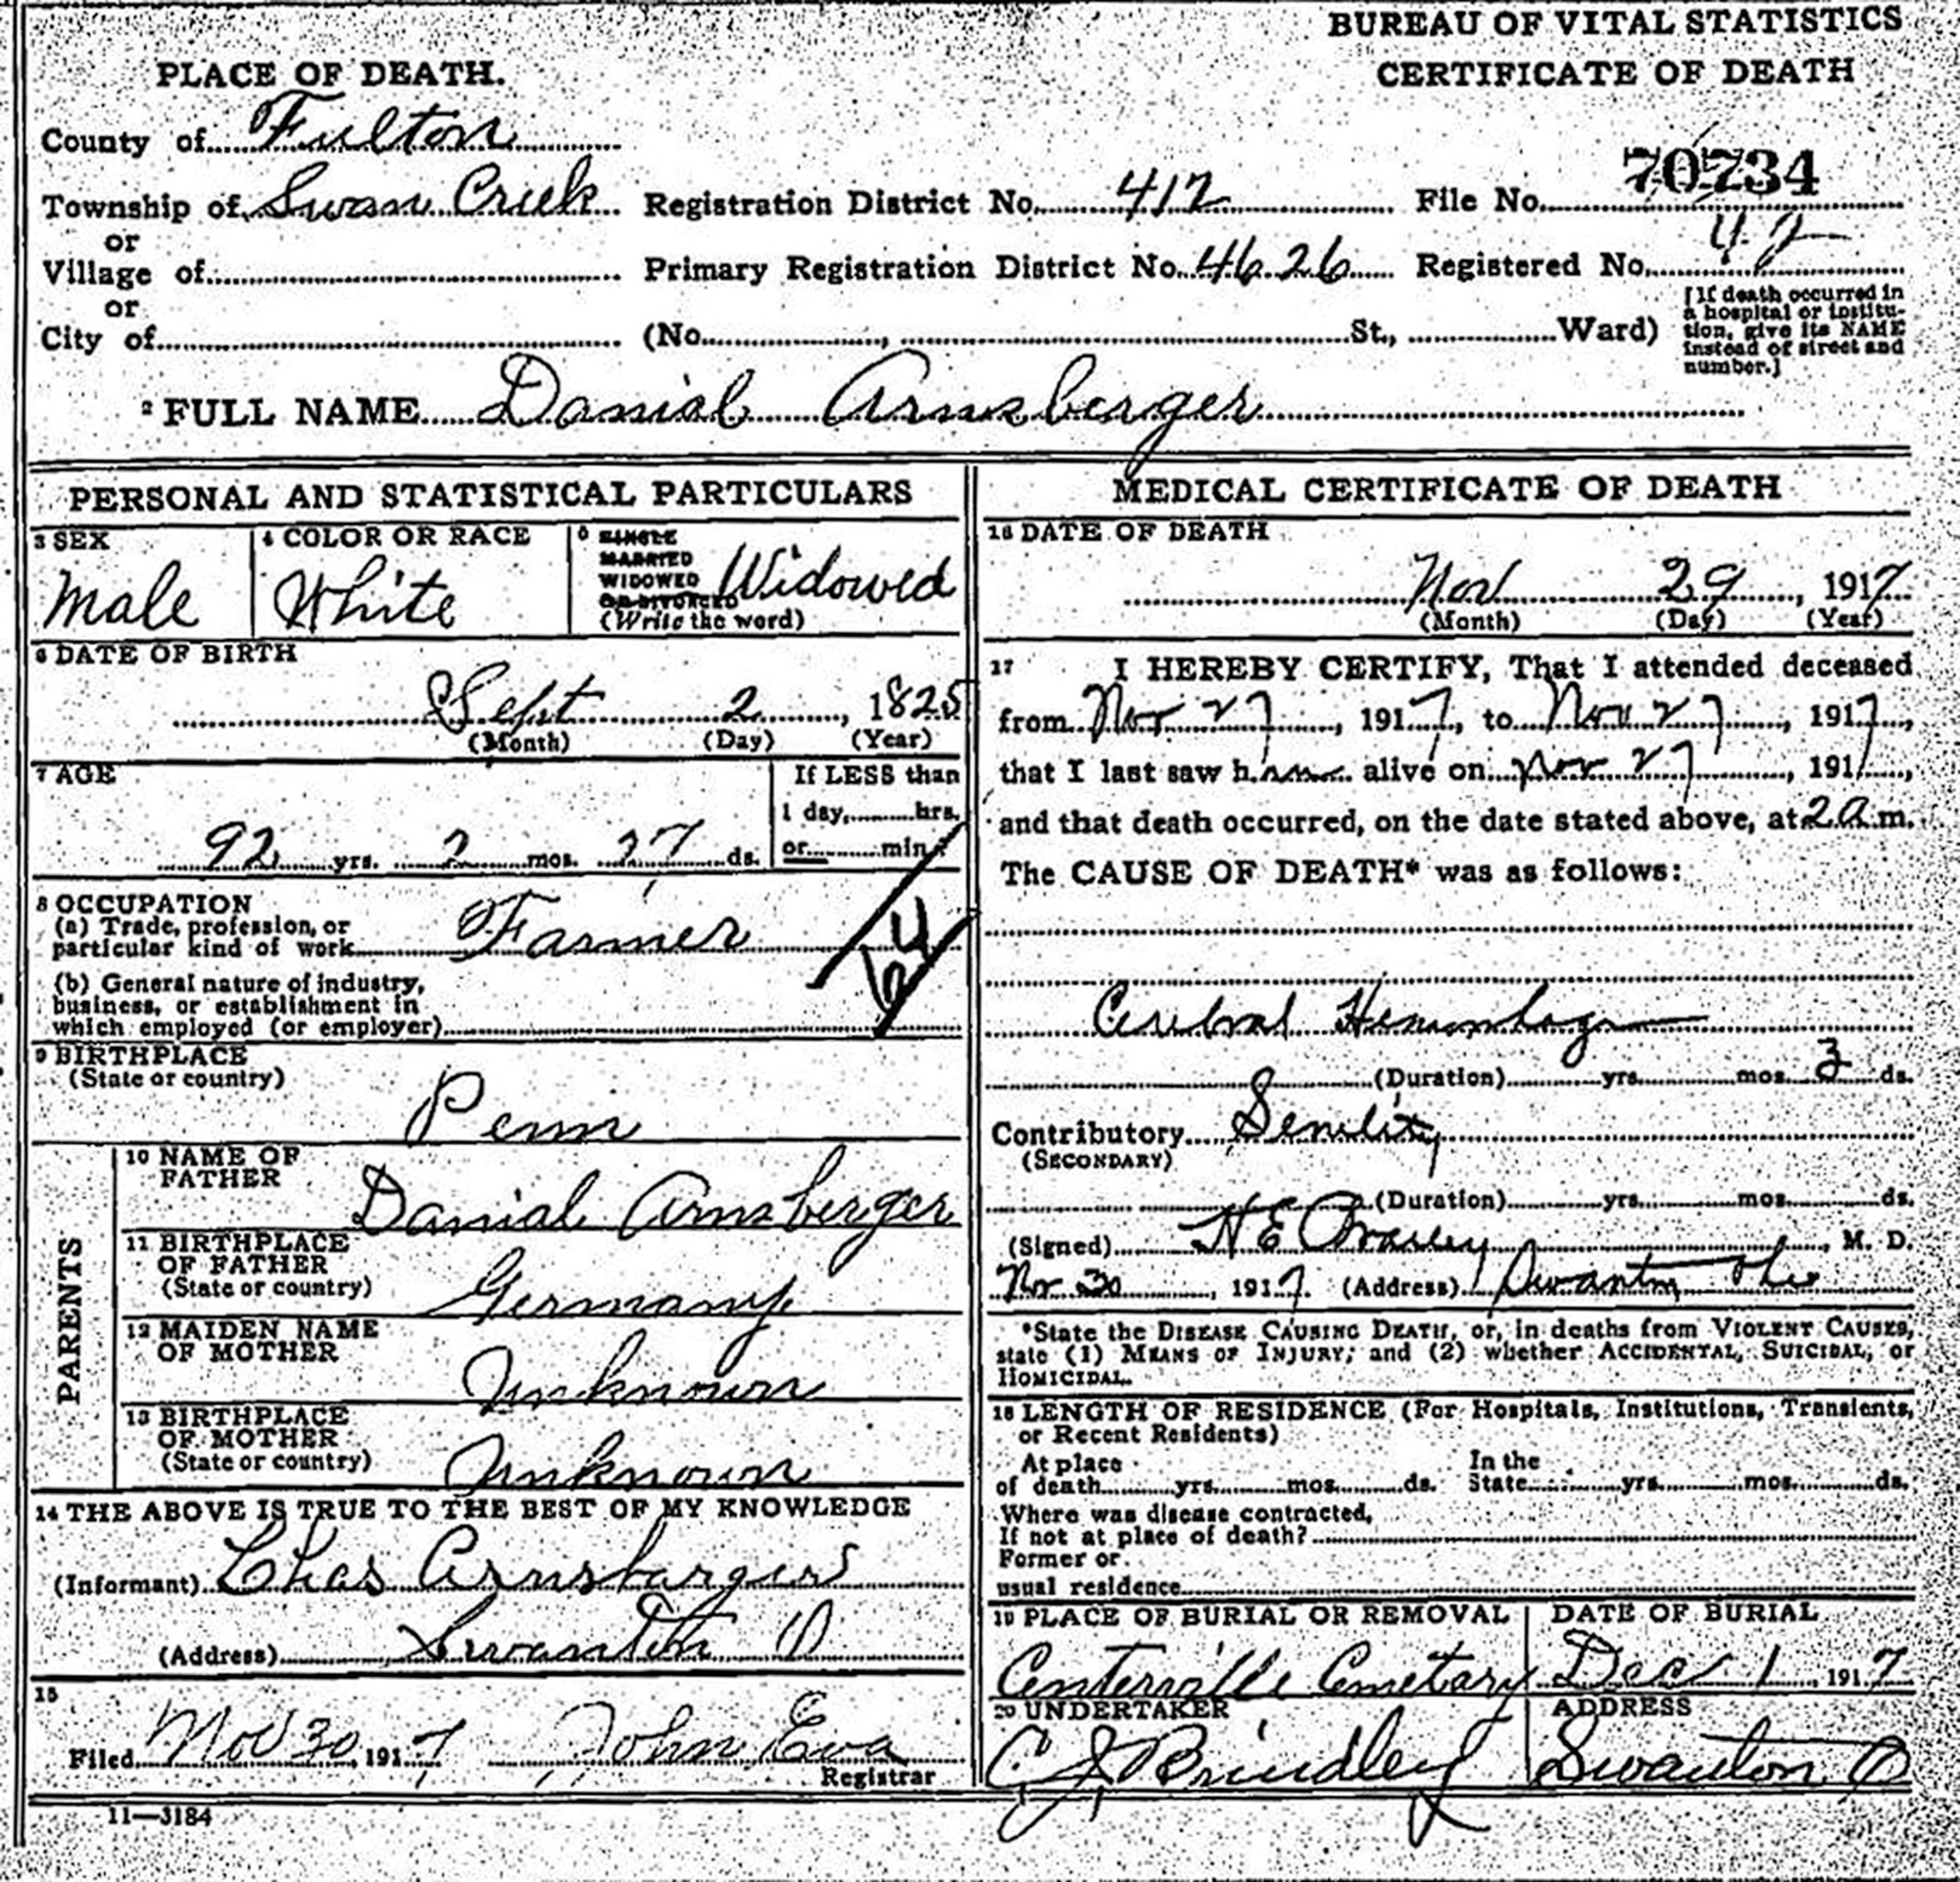 BUREAU OF VITAL STATISTICS
CERTIFICATE OF DEATH
PLACE OF DEATH.
County of Fulton
Township of Swan Creek Registration District No. 412 File No. 70734
or
Village of Primary Registration District No. 4626 Registered No. 42
or
City of (No. , St., Ward) [If death occurred in
a hospital or institu-
tion, give its NAME
instead of street and
number.]
2 FULL NAME Danial Arnsberger
PERSONAL AND STATISTICAL PARTICULARS
3 SEX
Male
4 COLOR OR RACE
White
5 SINGLE
MARRIED
WIDOWED
OR DIVORCED
(Write the word)
Widowed
6 DATE OF BIRTH
Sept 2, 1825
(Month) (Day) (Year)
7 AGE
92 yrs. 2 mos. 27 ds.
If LESS than
1 day, hrs.
or min.
8 OCCUPATION
(a) Trade, profession, or
particular kind of work Farmer
(b) General nature of industry,
business, or establishment in
which employed (or employer)
9 BIRTHPLACE
(State or country)
Penn
PARENTS
10 NAME OF
FATHER
Danial Arnsberger
11 BIRTHPLACE
OF FATHER
(State or country)
Germany
12 MAIDEN NAME
OF MOTHER
Unknown
13 BIRTHPLACE
OF MOTHER
(State or country)
Unknown
14 THE ABOVE IS TRUE TO THE BEST OF MY KNOWLEDGE
(Informant) Chas Arnsbarger
(Address) Swanton O
15
Filed Nov 30, 1917 John Eva
Registrar
11—3184
MEDICAL CERTIFICATE OF DEATH
16 DATE OF DEATH
Nov 29, 1917
(Month) (Day) (Year)
17 I HEREBY CERTIFY, That I attended deceased
from Nov 27, 1917, to Nov 27, 1917,
that I last saw him alive on Nov 27, 191 ,
and that death occurred, on the date stated above, at 2 a m.
The CAUSE OF DEATH* was as follows:
Cerebral Hemorhage
(Duration) yrs. mos. 3 ds.
Contributory Senility
(SECONDARY)
(Duration) yrs. mos. ds.
(Signed) H E , M. D.
Nov 30, 1917. (Address) Swanton Ohio
*State the DISEASE CAUSING DEATH, or, in deaths from VIOLENT CAUSES,
state (1) MEANS OF INJURY; and (2) whether ACCIDENTAL, SUICIDAL, or
HOMICIDAL.
18 LENGTH OF RESIDENCE (For Hospitals, Institutions, Transients,
or Recent Residents)
At place In the
of death yrs. mos. ds. State yrs. mos. ds.
Where was disease contracted,
If not at place of death?
Former or
usual residence
19 PLACE OF BURIAL OR REMOVAL
Centerville Cemetary
DATE OF BURIAL
Dec 1, 1917
20 UNDERTAKER
C J Brindley
ADDRESS
Swanton O